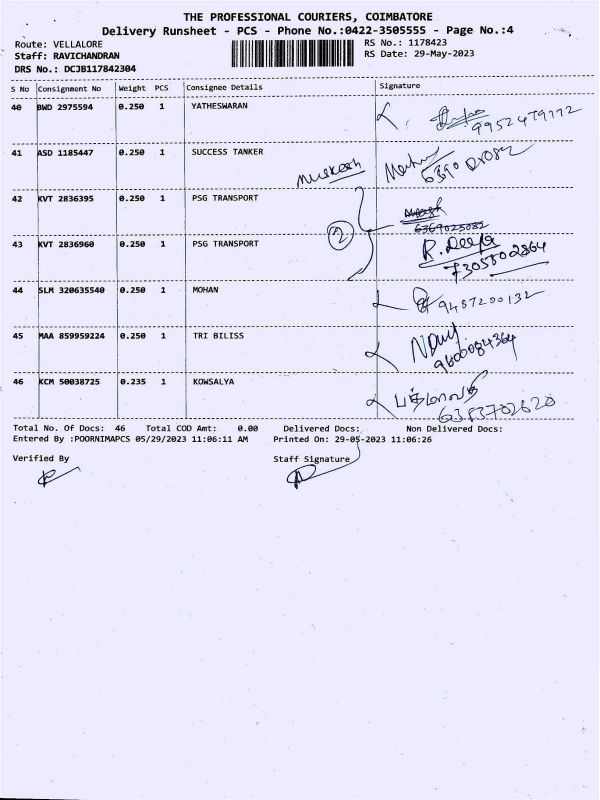 THE PROFESSIONAL COURIERS, COIMBATORE
Delivery Runsheet - PCS - Phone No.:0422-3505555 - Page No.:4
Route: VELLALORE RS No.: 1178423
Staff: RAVICHANDRAN RS Date: 29-May-2023
DRS No.: DCJB117842304
S No Consignment No Weight PCS Consignee Details Signature
40 BWD 2975594 0.250 1 YATHESWARAN
9952479772
41 ASD 1185447 0.250 1 SUCCESS TANKER
42 KVT 2836395 0.250 1 PSG TRANSPORT
6369025082
43 KVT 2836960 0.250 1 PSG TRANSPORT
2
R. Deepa
7305802864
44 SLM 320635540 0.250 1 MOHAN
9487200132
45 MAA 859959224 0.250 1 TRI BILISS
9600084364
46 KCM 50038725 0.235 1 KOWSALYA
பத்மாவதி
6383702620
Total No. Of Docs: 46 Total COD Amt: 0.00 Delivered Docs: Non Delivered Docs:
Entered By :POORNIMAPCS 05/29/2023 11:06:11 AM Printed On: 29-05-2023 11:06:26
Verified By Staff Signature